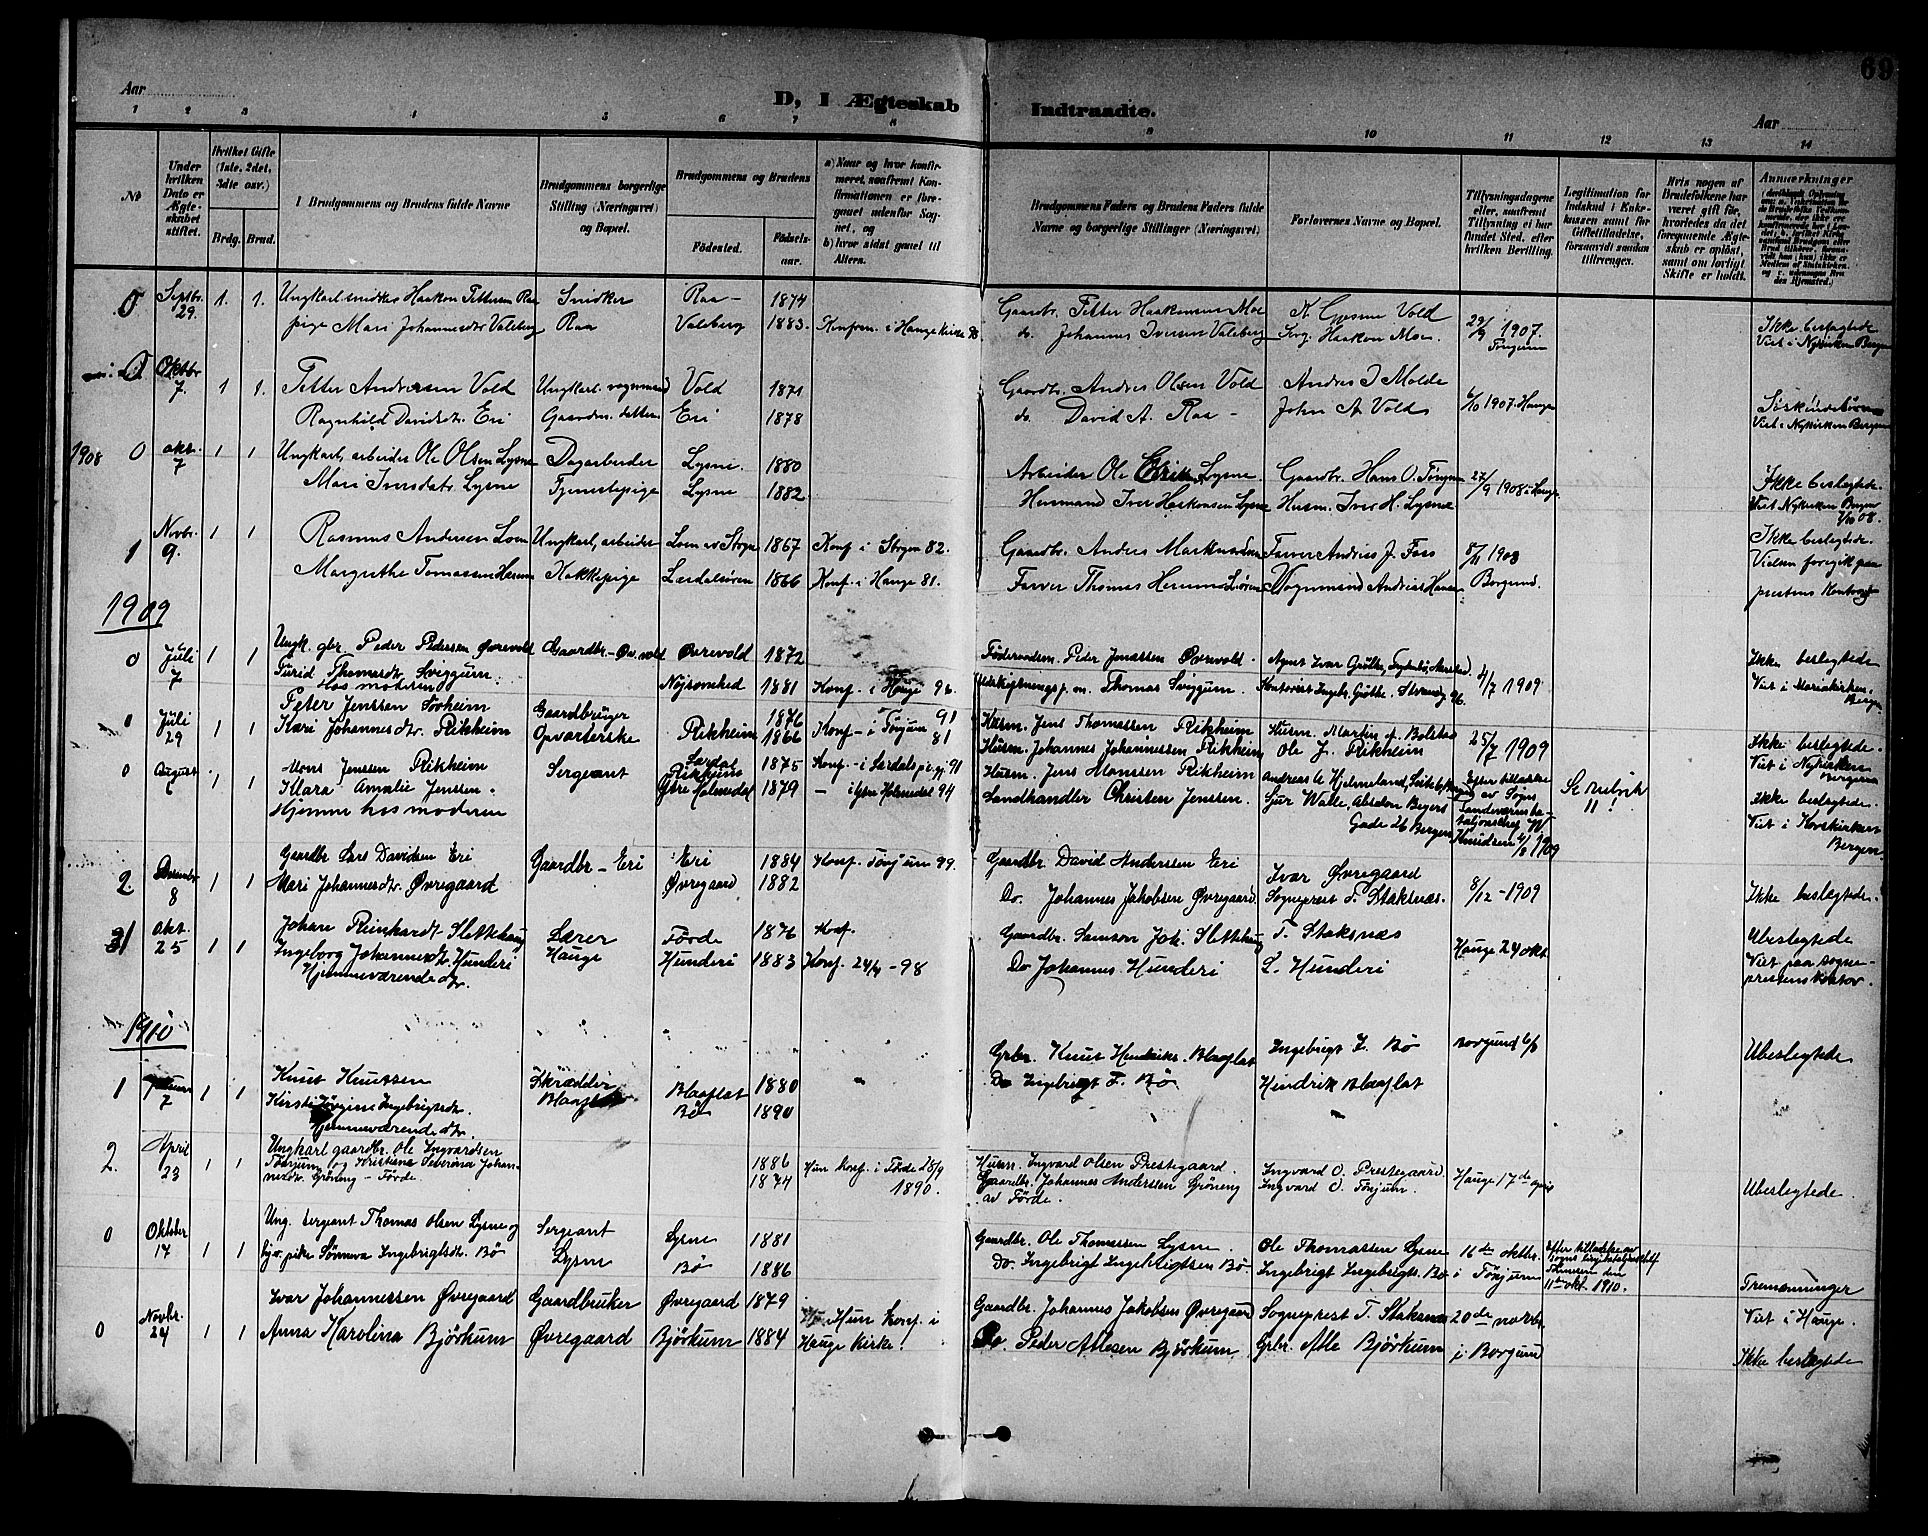 69
Aar
D, I Ægteskab Indtraadte.
Aar
1 2 3 4 5 6 7 8 9 10 11 12 13 14
No
Under hvilken Dato er Ægteskabet stiftet.
Hvilket Gifte (1ste, 2det, 3die osv.)
Brdg. Brud.
I Brudgommens og Brudens fulde Navne
Brudgommens borgerlige Stilling (Næringsvei) og Bopæl.
Brudgommens og Brudens
Fødested.
Fødselsaar.
a) Naar og hvor konfirmeret, saafremt Konfirmationen er foregaaet udenfor Sognet, og
b) hvor sidst gaaet til Alters.
Brudgommens Faders og Brudens Faders fulde Navne og borgerlige Stillinger (Næringsvei)
Forlovernes Navne og Bopæl.
Tillysningsdagene eller, saafremt Tillysning ei har fundet Sted, efter hvilken Bevilling.
Legitimation for Indskud i Enkekassen samt for Giftetilladelse, forsaavidt saadan tiltrænges.
Hvis nogen af Brudefolkene har været gift før, hvorledes da det foregaaende Ægteskab er opløst, samt om lovligt Skifte er holdt.
Anmærkninger
0 Septbr. 29. 1. 1. Ungkarl snidker Haakon Pettersen Raa Snidker Raa 1874 Gaardbr. Petter Haakonsen Moe K. Gjesme Vold 29/9 1907. Tønjum
pige Mari Johannesdtr Valeberg Raa Valeberg 1883. Konfirm. i Hauge kirke do. Johannes Iversen Valeberg Serg. Haakon Moe. Ikke beslægtede Viet i Nykirken Bergen
0 Oktbr 7. 1 1. Petter Andersen Vold Ungkarl. vognmand Vold 1871 Gaardbr. Andres Olsen Vold Andres J Molde 6/10 1907. Hauge
Ragnhild Davidsdtr. Eri Gaardm. datter Eri 1878 do. David A. Raa John A Vold Søskendebørn Viet i Nykirken Bergen
1908 0 okt. 7 1 1 Ungkarl, arbeider Ole Olsen Lysne Dagarbeider Lysne. 1880 Arbeider Ole Eriksen Lysne Gaardbr. Hans O. Tønjum 27/9 1908 i Hauge
Mari Iversdatr. Lysne Tjenestepige Lysne 1882 Husmand Iver Haakonsen Lysne Husm. Iver H. Lysne Ikke beslægtede. Viet Nykirken Bergen 7/10 08.
1 Novbr. 9. 1 1 Rasmus Andersen Loen Ungkarl, arbeider Loen av Stryn 1867 Konf i Stryn 82. Gaardbr. Anders Markussen Farver Andreas J. Foss 8/11 1908 Ikke beslægtede.
Margrethe Tomassen Hermo Kokkepige Lærdalsøren 1866 Konf. i Hauge 81. Farver Thomas Vognmand Andreas Hansen Borgund. Vielsen foregik paa prestens kontor
1909
0 Juli 7 1 1 Ungk. gbr Peder Pedersen Øvrevold Gaardbr. - Øv. vold Øvrevold 1872 Føderaadsm. Peder Jonassen Øvrevold. Agent Ivar Grøtte, 4/7 1909 Ikke beslægtede
Turid Thomasdtr Sviggum. Hos moderen Nøisomhed 1881 Konf. i Hauge 96. Udskiftningsf. m. Thomas Sviggum. Kontorist Ingebr. Grøtte. Strandg 96. Viet i Mariakirken. Bergen.
0 Juli 29 1 1 Peter Jenssen Soxheim Gaardbruger 1876 Konf - i Tønjum 91 Husm. Jens Thomassen Rikheim Husm. Martin A. Bolstad 25/7 1909 Ikke beslægtede.
Kari Johannesdtr. Rikheim Opvarterske Rikheim 1866 81 Husm. Johannes Johannessen Rikheim Ole J. Rikheim Viet i Nykirken Bergen
0 August 1 1 Mons Jenssen Rikheim Sergeant Lærdal Rikheim 1875 Konf. - i Lærdals p.gj. 91 Husm. Jens Monssen Rikheim Andreas L Hjelmeland, Efter tilladelse av Sogns Landeværnsbataljonschef Knudsen 4/8 1909 Se rubrik 11! Ikke beslægtede.
Klara Amalie Jenssen. Hjemme hos moderen Ytre Holmedal 1879 - i Ytre Holmedal 94 Landhandler Christen Jenssen. Sjur Walle, Absalon Beyers Gade 26 Bergen Viet i Korskirken Bergen.
2. Desember 8 1 1 Gaardbr Lars Davidsen Eri Gaardbr - Eri Eri 1884 Konf. Tønjum 99. Gaardbr. David Anderssen Eri Ivar Øvregaard 8/12 - 1909
Mari Johannesdtr. Øvregaard Øvregaard 1882 Do. Johannes Jakobsen Øvregaard. Sogneprest T. Staksnæs. Ikke beslægtede.
31 Okt. 25 1 1 Johan Reinhardt Slettehaug Lærer Førde 1876 Konf. Gaardbr. Samson Joh. Slettehaug T. Staksnæs Hauge 24 okt. Ubeslegtede
Ingeborg Johannesdtr. Hunderi Hjemmeværende dtr. Hauge Hunderi 1883 Konf. 24/4 - 98 Do Johannes Hunderi L. Hunderi Viet paa sogneprestens kontor.
1910
1 7 1 1 Knut Knutsen Skrædder Blaaflat 1880 Grbr. Knut Hendriks. Blaaflat Ingebrigt I. Bø Borgund 6/ Ubeslegtede
Kirsti Jørgine Ingebrigtsdtr. Hjemmeværende dtr. Blaaflat Bø 1890 Do Ingebrigt I. Bø Hendrik Blaaflat
2. April 23 1 1 Ungkarl gaardbr. Ole Ingvardsen 1886 Hun konf. i Førde 28/9 1890. Husm. Ingvard Olsen Prestegaard. Ingvard O. Prestegaard Hauge 17de april
Tønjum og Kristiane Severina Johannesdtr. Grøning - Førde. 1874 Gaardbr. Johannes Anderssen Grøning av Førde. Ingvard O. Tønjum. Ubeslegtede.
0 Oktober 17 1 1 Ung. sergeant Thomas Olsen Lysne og Sergeant Lysne 1881 Gaardbr. Ole Thomassen Lysne. Ole Thomassen Lysne 16de oktbr. Efter tilladelse av Sogns Thuesen den 11te okt. 1910.
hjv. pike Sønneva Ingebrigtsdt. Bø Lysne Bø 1886 Do. Ingebrigt Ingebrigtsen Bø. Ingebrigt Ingebrigts. Bø i Tønjum Tremænninger
0 Novbr. 24 1 1 Ivar Johannessen Øvregaard Gaardbruker Øvregaard 1879 Hun konf. i Hauge Kirke! Gaardbr. Johannes Jakobsen Øvregaard Sogneprest T. Staksnæs 20de novbr. Viet i Hauge.
Anna Karolina Bjørkum Øvregaard Bjørkum 1884 Do Peder Atlesen Bjørkum Grbr. Atle Bjørkum i Borgund Ikke beslegtede